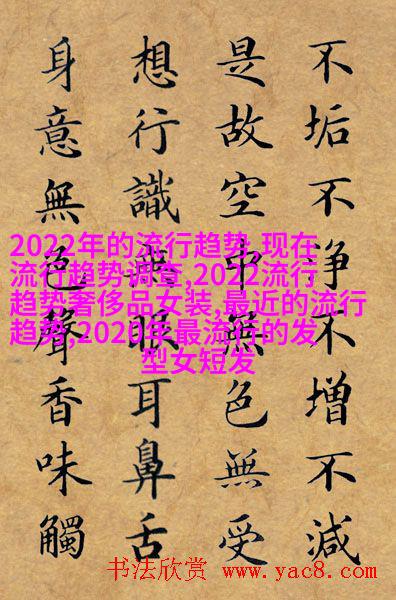 不垢不净不增不減
是故空中無色無受
想行識無眼耳鼻舌
身意無色聲香味觸
2022年的流行趋势,现在
流行趋势调查,2022流行
趋势奢侈品女装,最近的流行
趋势,2020年最流行的发
型女短发
书法欣赏 www.yac8.com